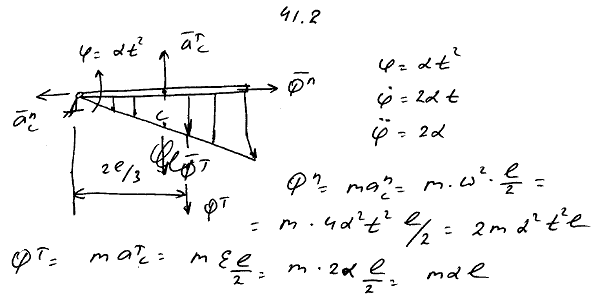 41.2
φ = αt²
ā_c^τ
Φ̄ⁿ
ā_cⁿ
c
Φ̄^τ
2ℓ/3
Φ^τ
φ = αt²
φ̇ = 2αt
φ̈ = 2α
Φⁿ = ma_cⁿ = m · ω² · ℓ/2 =
= m · 4α²t² ℓ/2 = 2mα²t²ℓ
Φ^τ = ma_c^τ = mε ℓ/2 = m · 2α ℓ/2 = mαℓ